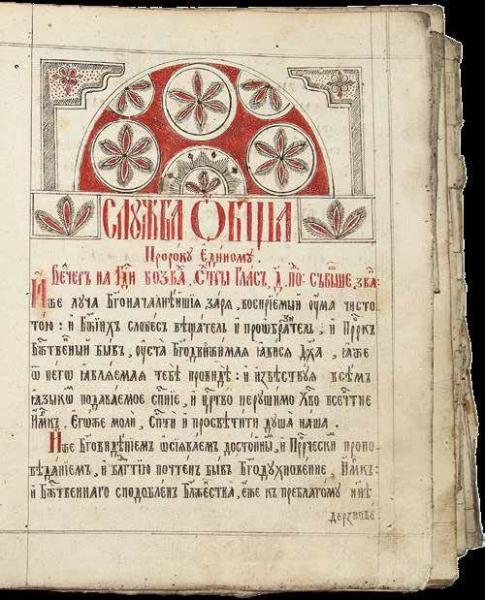 СЛУЖБА ОБЩАЯ
Пророку Єдиному.
Вечеръ на Гди возва, Стры гласъ, д҃. по: Съвыше, зва:
Иже луча Бг҃оначалнѣишїѧ зарѧ, воспрїемый ѹма чисто
тою: и Бж҃їихъ словесъ вѣщатель и прошбрѧтель, и Пр҃ркъ
Бж҃твеный бывъ, ѹста Бг҃одвижимаѧ ꙗвисѧ Дх҃а, ꙗже
ѿ него ꙗвлѧемаѧ тебѣ провидѣ: и извѣствуѧ всѣмъ
ꙗзыкѡ подаваемое сп҃нїе, и цр҃тво нерушимо Хв҃о всечт҃не
И҃мкъ. Єгоже моли, сп҃сти и просвѣтити душа наша.
Иже Бг҃овидѣнїемъ ѡсїѧваемъ достойны, и Пр҃рчески пропо
вѣданїемъ, и бл҃гтїю почтенъ бывъ Бг҃одухновенне, И҃мкъ:
и Бж҃твеннаго сподобленъ Блж҃ества, еже къ преблагому нн҃ѣ
дерзнове